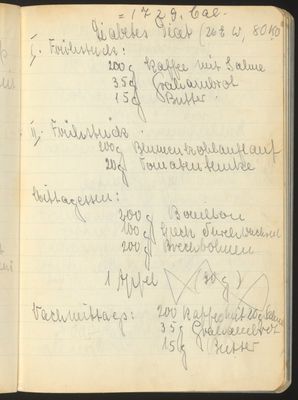 = 1729. Cal.
Diabetes Diät (20 E W, 80 K)
I. Frühstück:
200 g Kaffee mit Sahne
35 g Grahambrot
15 g Butter
II. Frühstück.
200 g Blumenkohlauflauf
20 g Tomatentunke
Mittagessen:
200 g Bouillon
100 g
200 g Brechbohnen
1 Apfel (90 g)
Nachmittags: 200 Kaffee mit 20 g Sahne
35 g Grahambrot
15 g Butter